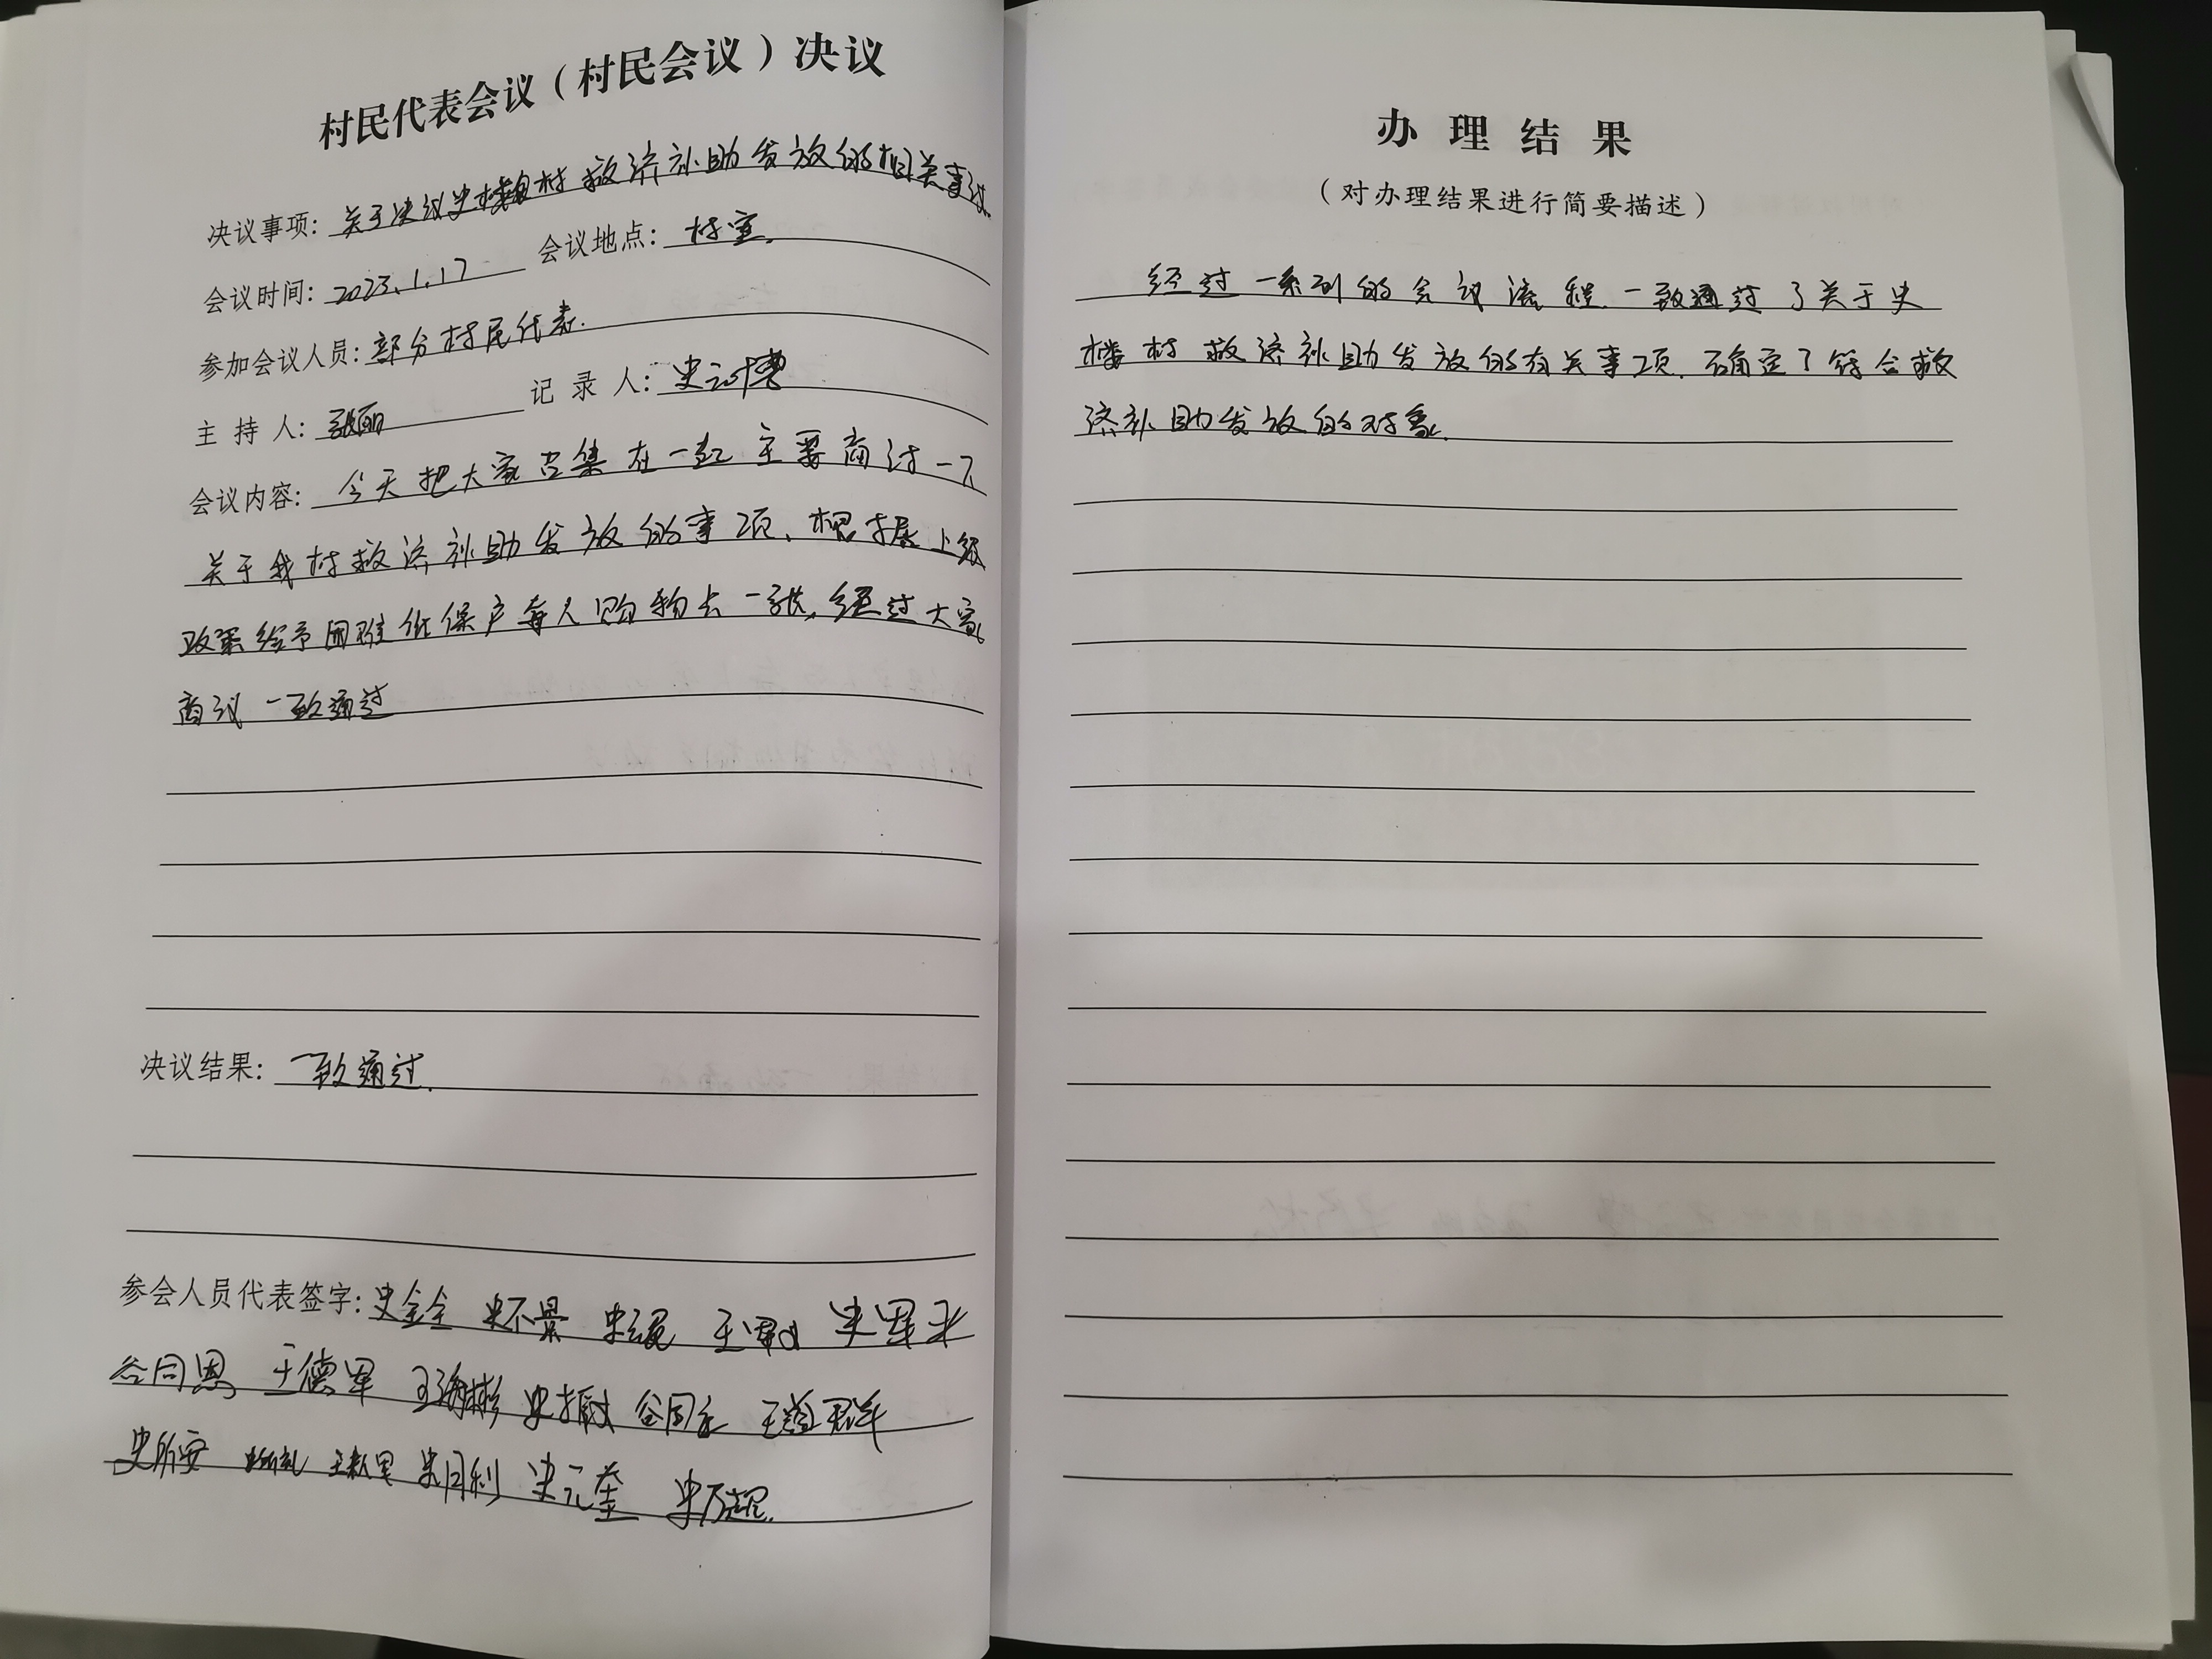 村民代表会议（村民会议）决议
决议事项：关于决议史楼村救济补助发放的相关事议.
会议时间：2023.1.17 会议地点：村室.
参加会议人员：部分村民代表.
主持人：张丽 记录人：史
会议内容：今天把大家召集在一起主要商讨一下
关于我村救济补助发放的事项、根据上级
政策给予困难低保户每人购物卡一张，经过大家
商议一致通过
决议结果：一致通过.
参会人员代表签字：史金全
谷同恩 于德军 王海彬
史所安 史元奎
办理结果
（对办理结果进行简要描述）
经过一系列的会议流程.一致通过了关于史
楼村救济补助发放的有关事项.确定了符合救
济补助发放的对象.